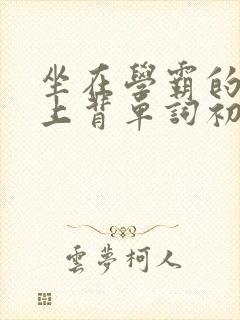 坐在學霸的
上背單詞初
雲夢柯人